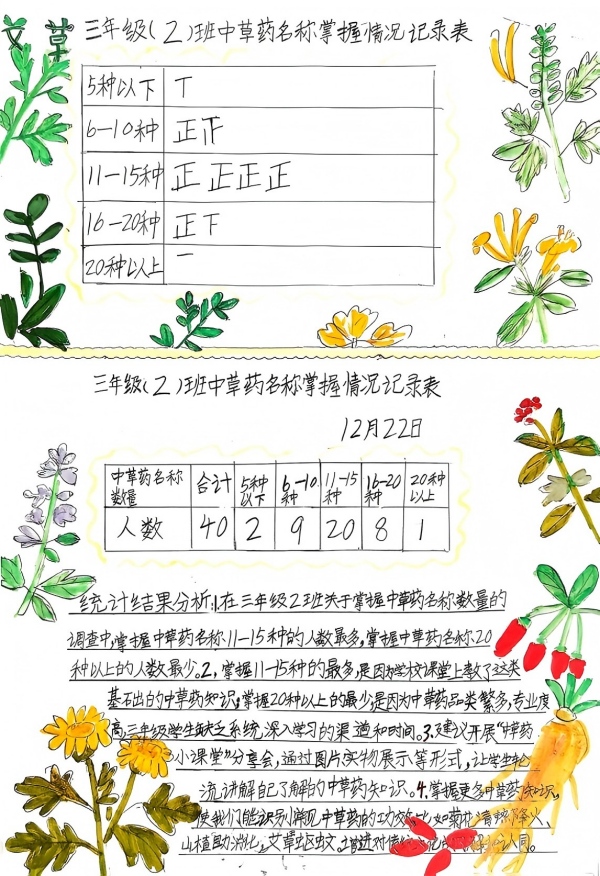 艾草
三年级(2)班中草药名称掌握情况记录表
5种以下 丅
6-10种 正
11-15种 正 正 正 正
16-20种 正 下
20种以上 一
三年级(2)班中草药名称掌握情况记录表
12月22日
中草药名称数量 合计 5种以下 6-10种 11-15种 16-20种 20种以上
人数 40 2 9 20 8 1
统计结果分析:1.在三年级2班关于掌握中草药名称数量的
调查中,掌握中草药名称11-15种的人数最多,掌握中草药名称20
种以上的人数最少。2,掌握11-15种的最多,是因为学校课堂上教了这类
基石出的中草药知识,掌握20种以上的最少是因为中草药品类繁多,专业度
高,三年级学生缺乏系统深入学习的渠道和时间。3.建议开展"中草药
小课堂"分享会,通过图片实物展示等形式,让学生轮
流讲解自己了解的中草药知识。4.掌握更多中草药知识,
使我们能识别常见中草药的功效,比如菊花清热降火、
山楂助消化,艾草驱蚊。增进对传统文化的认同。